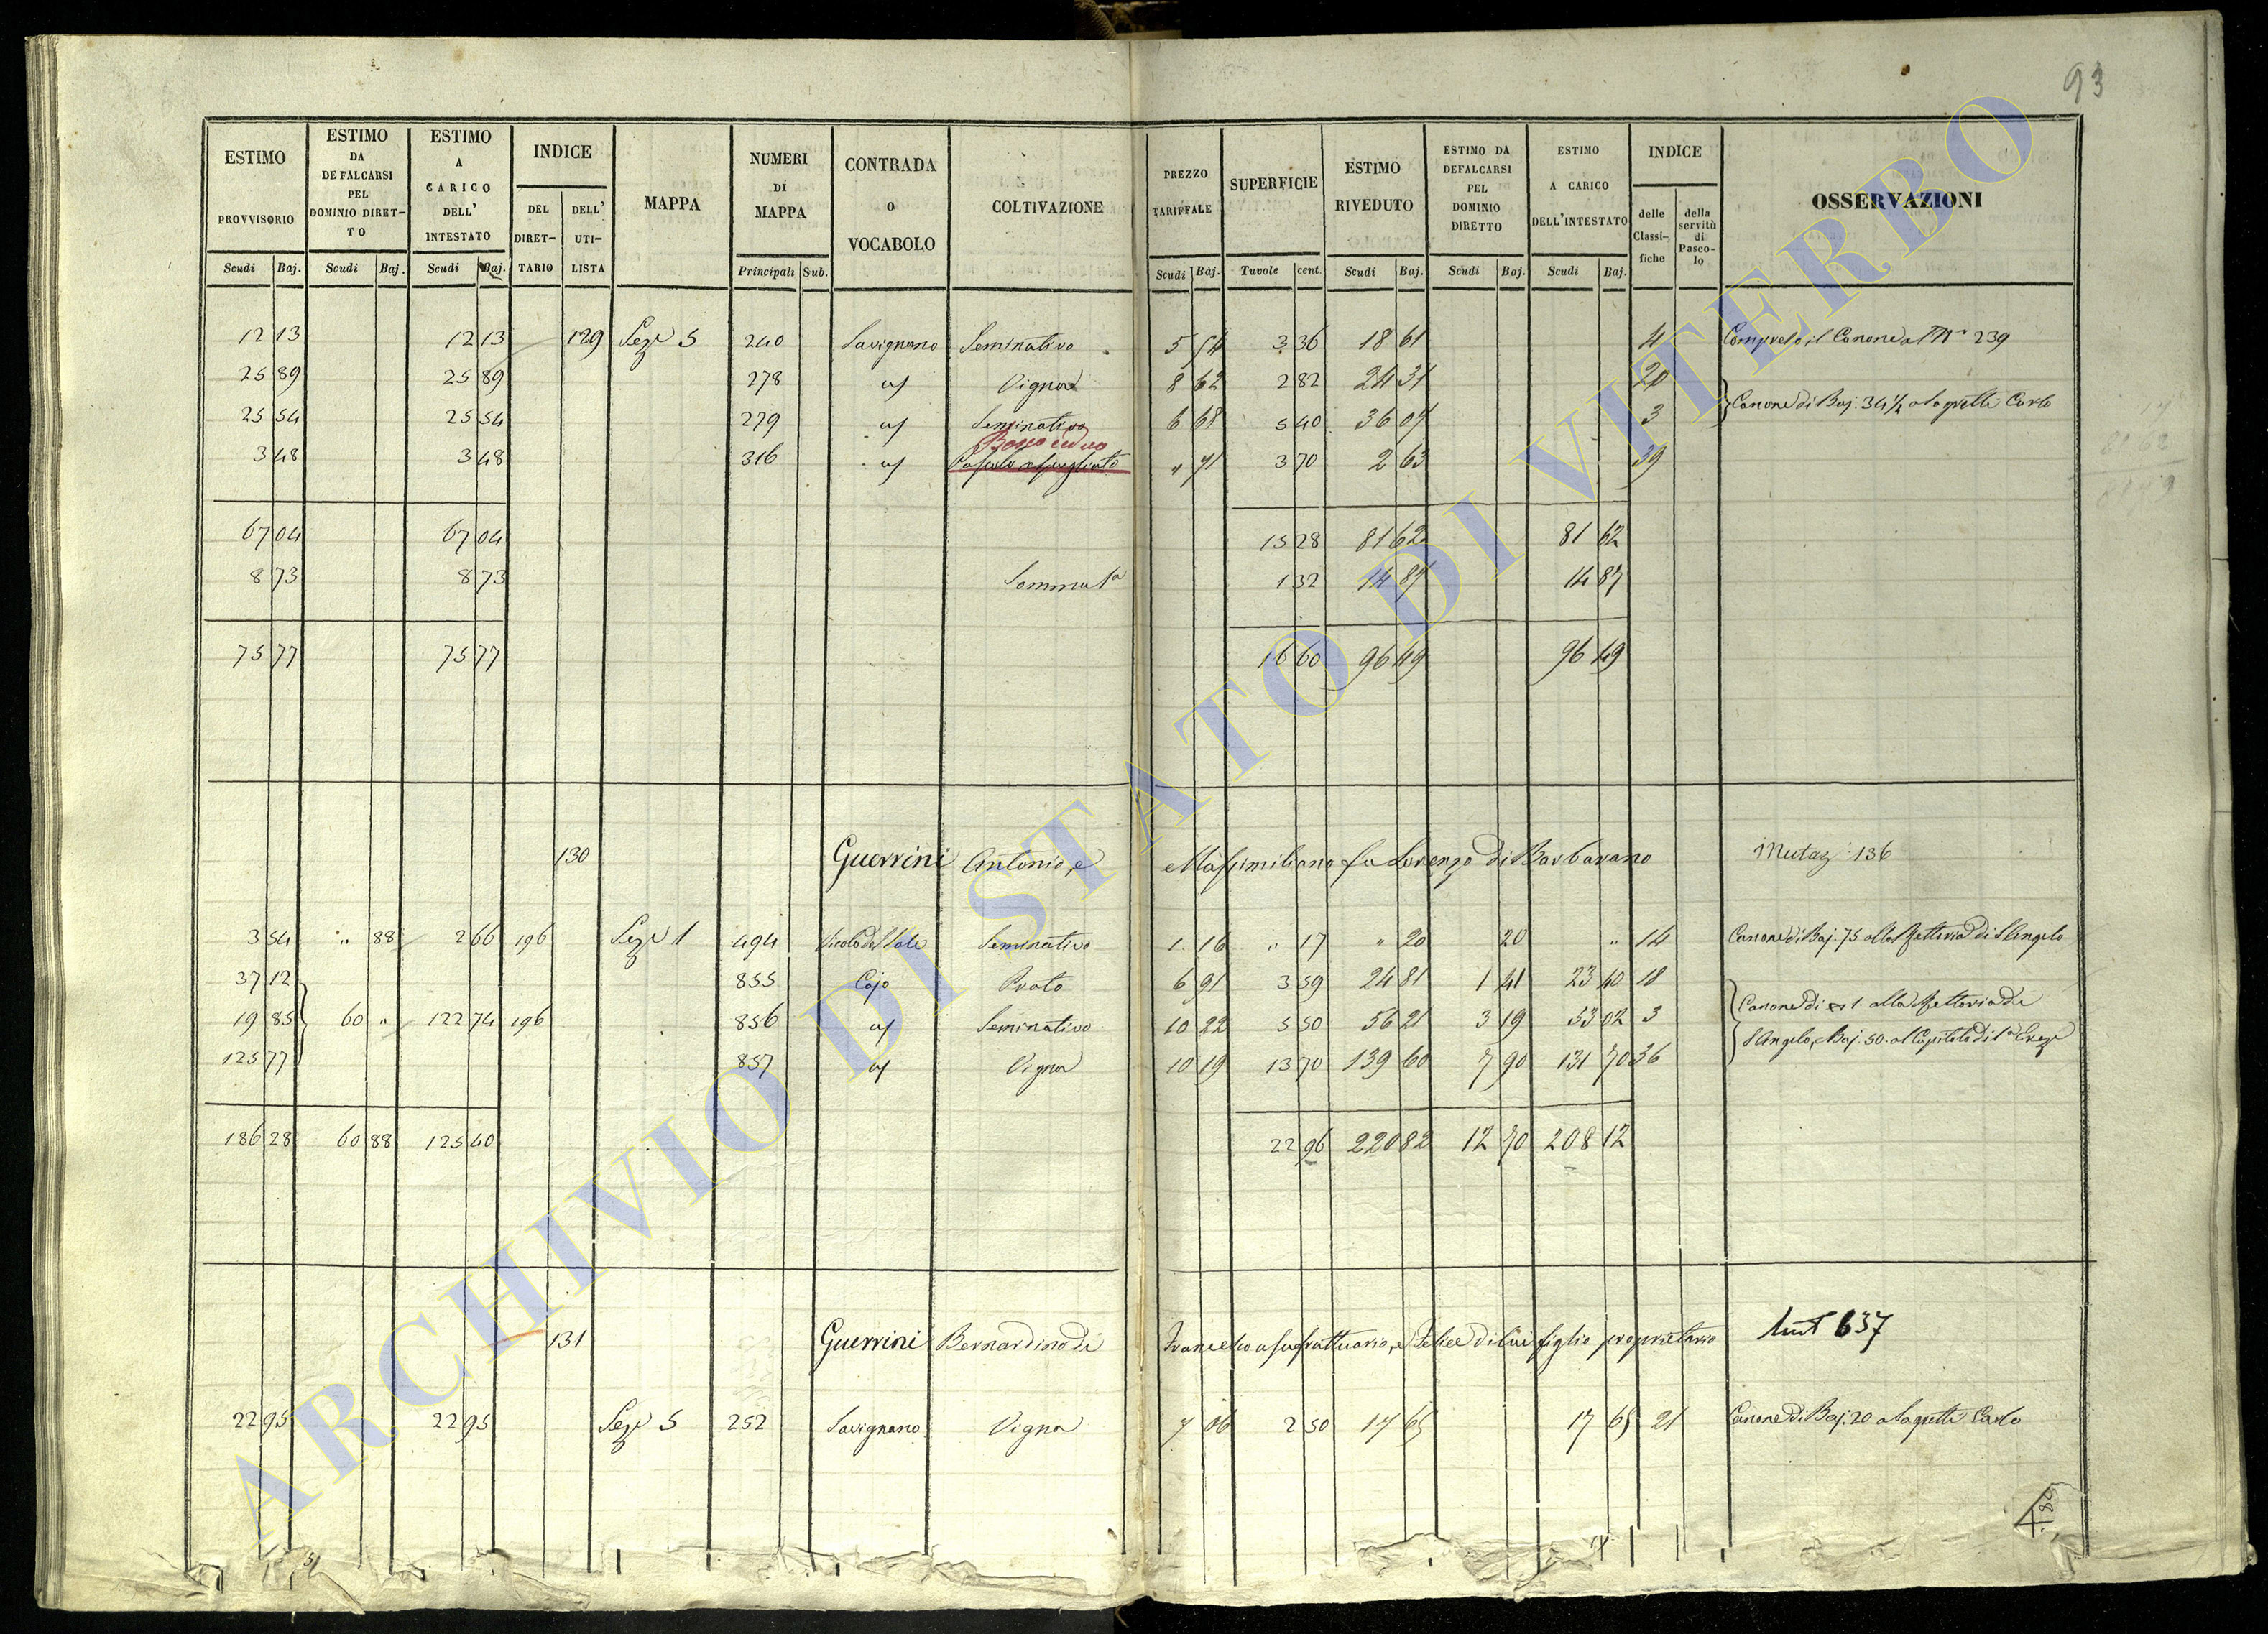 93
ESTIMO PROVVISORIO Scudi Baj.
ESTIMO DA DEFALCARSI PEL DOMINIO DIRETTO Scudi Baj.
ESTIMO A CARICO DELL' INTESTATO Scudi Baj.
INDICE DEL DIRETTARIO DELL' UTILISTA
MAPPA
NUMERI DI MAPPA Principali Sub.
CONTRADA O VOCABOLO
COLTIVAZIONE
PREZZO TARIFFALE Scudi Baj.
SUPERFICIE Tavole cent.
ESTIMO RIVEDUTO Scudi Baj.
ESTIMO DA DEFALCARSI PEL DOMINIO DIRETTO Scudi Baj.
ESTIMO A CARICO DELL'INTESTATO Scudi Baj.
INDICE delle Classifiche della servitù di Pascolo
OSSERVAZIONI
12 13 12 13 129 Sez.e 5 240 Savignano Seminativo 5 54 3 36 18 61 4 Compreso il Canone al N.° 239
25 89 25 89 278 id Vigna 8 62 2 82 24 31 20
25 54 25 54 279 id Seminativo 6 68 5 40 36 07 3 Canone di Baj. 34 1/2 a Sagretti Carlo
Bosco ceduo
3 48 3 48 316 id Pascolo cespugliato " 71 3 70 2 63 39
67 04 67 04 15 28 81 62 81 62
8 73 8 73 Somma 1a 1 32 14 87 14 87
75 77 75 77 16 60 96 49 96 49
130 Guerrini Antonio, e Massimiliano fu Lorenzo di Barbarano Mutaz. 136
3 54 " 88 2 66 196 Sez.e 1 494 Vicolo del Sole Seminativo 1 16 " 17 " 20 20 " 14 Canone di Baj. 75 alla Rettoria di S Angelo
37 12 855 Cajo Prato 6 91 3 59 24 81 1 41 23 40 18
19 85 60 " 122 74 196 856 id Seminativo 10 22 5 50 56 21 3 19 53 02 3 Canone di 1. alla Rettoria di
125 77 857 id Vigna 10 19 13 70 139 60 7 90 131 70 36 S Angelo, e Baj. 50. al Capitolo di S.a Croce
186 28 60 88 125 40 22 96 220 82 12 70 208 12
131 Guerrini Bernardino di Francesco usufruttuario, e Felice di lui figlio proprietario Mut 637
22 95 22 95 Sez.e 5 252 Savignano Vigna 7 06 2 50 17 65 17 65 21 Canone di Baj. 20 a Sagretti Carlo
ARCHIVIO DI STATO DI VITERBO